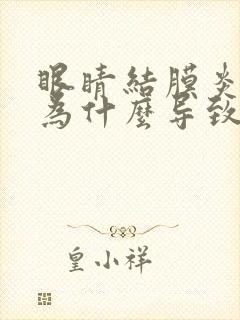 眼睛結膜炎
為什麼导致
皇小祥